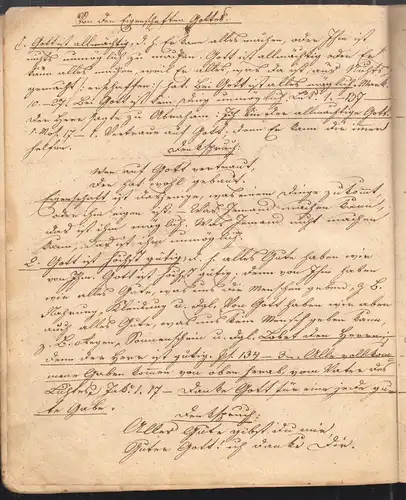 Von den Eigenschaften Gottes.
1. Gott ist allmächtig, d. h. Er kann alles machen, oder Ihm ist
nichts unmöglich zu machen. Gott ist allmächtig oder Er
kann alles machen, weil Er alles, was da ist, aus Nichts
gemacht (: erschaffen :) hat. Bei Gott ist alles möglich. Mark.
10-27. Bei Gott ist kein Ding unmöglich. Luk. 1.-37.
Der Herr sagte zu Abraham: Ich bin der allmächtige Gott.
1 Mos. 17-1. Vertraue auf Gott; denn Er kann dir immer
helfen.
Denkspruch:
Wer auf Gott vertraut,
Der hat wohl gebaut.
Eigenschaft ist dasjenige, was einem Dinge zukommt
oder ihm eigen ist. Was Jemand machen kann,
das ist ihm möglich. Was Jemand nicht machen
kann, das ist ihm unmöglich.
2. Gott ist höchst gütig, d. h. alles Gute haben wir
von Ihm. Gott ist höchst gütig, denn von Ihm haben
wir alles Gute, was uns die Menschen geben, z. B.
Nahrung, Kleidung u. dgl. Von Gott haben wir aber
auch alles Gute, was uns kein Mensch geben kann,
z. B. Regen, Sonnenschein u. dgl. Lobet den Herren,
denn der Herr ist gütig. Ps. 134-3. Alle vollkom-
mene Gaben kommen von oben herab, vom Vater des
Lichtes. Jak. 1. 17- Danke Gott für eine jede gu-
te Gabe.
Denkspruch:
Alles Gute gibst du mir
Guter Gott! ich danke Dir.